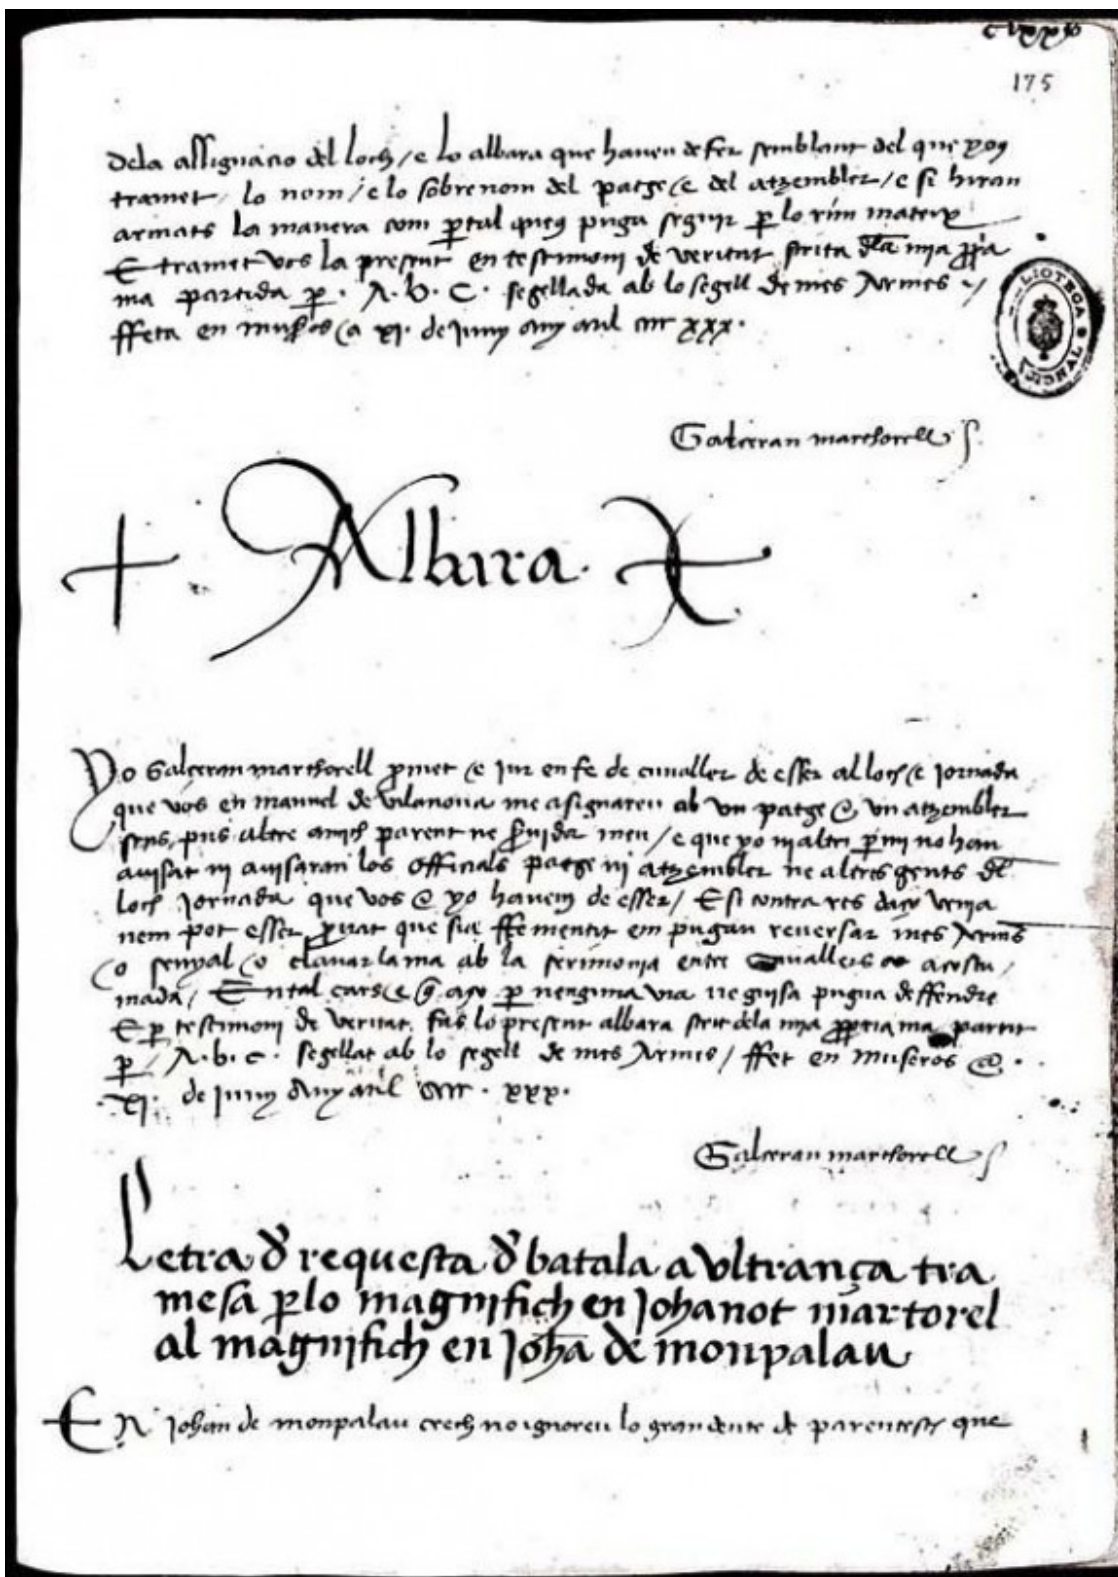 175
dela assignacio del loch / e lo albara que haveu de fer semblant del que yous
tramet / lo nom / e lo sobrenom del patge / e del atzembler / e si hiran
armats la manera com ꝑtal queus puga seguir ꝑ lo rim mateix
E tramet vos la present en testimoni de veritat scrita dla mia ꝓpa
ma partida ꝑ · A · b · C · segellada ab lo segell de mes Armes ·/
ffeta en museros / a xj. de juny any mil cccc xxx ·
BIBLIOTECA NACIONAL
Galceran marthorell
Albara ·
Yo Galçeran marthorell ꝓmet e jur en fe de cavaller de esser al loch e jornada
que vos en manuel de vilanova me asignareu ab un patge e un atzembler
sens pus altre amich parent ne s̃vidor meu / e que yo ni altri ꝑ mi no han
avisat ni avisaran los officials patge ni atzembler ne altres gents dl
loch jornada que vos e yo havem de esser / E si contra res daço venia
nem pot esser ꝓvat que sia ffementit em pugau reversar mes Armes
/ o senyal / o clavar la ma ab la serimonia entre cavallers acostu /
mada / En tal cars e q̃ aço ꝑ nenguna via ne guisa pugua deffendre
E ꝑ testimoni de veritat fas lo present albara scrit dela mia ꝓpia ma partit
ꝑ / A · b · c · segellat ab lo segell de mes Armes / ffet en Museros a ·
· xj · de juny Any mil cccc · xxx ·
Galceran marthorell
Letra d̃ requesta d̃ batala a ultrança tra
mesa ꝑlo magnifich en Johanot martorel
al magnifich en Joha de monpalau
En Johan de monpalau crech no ignoreu lo gran deute de parentesch que